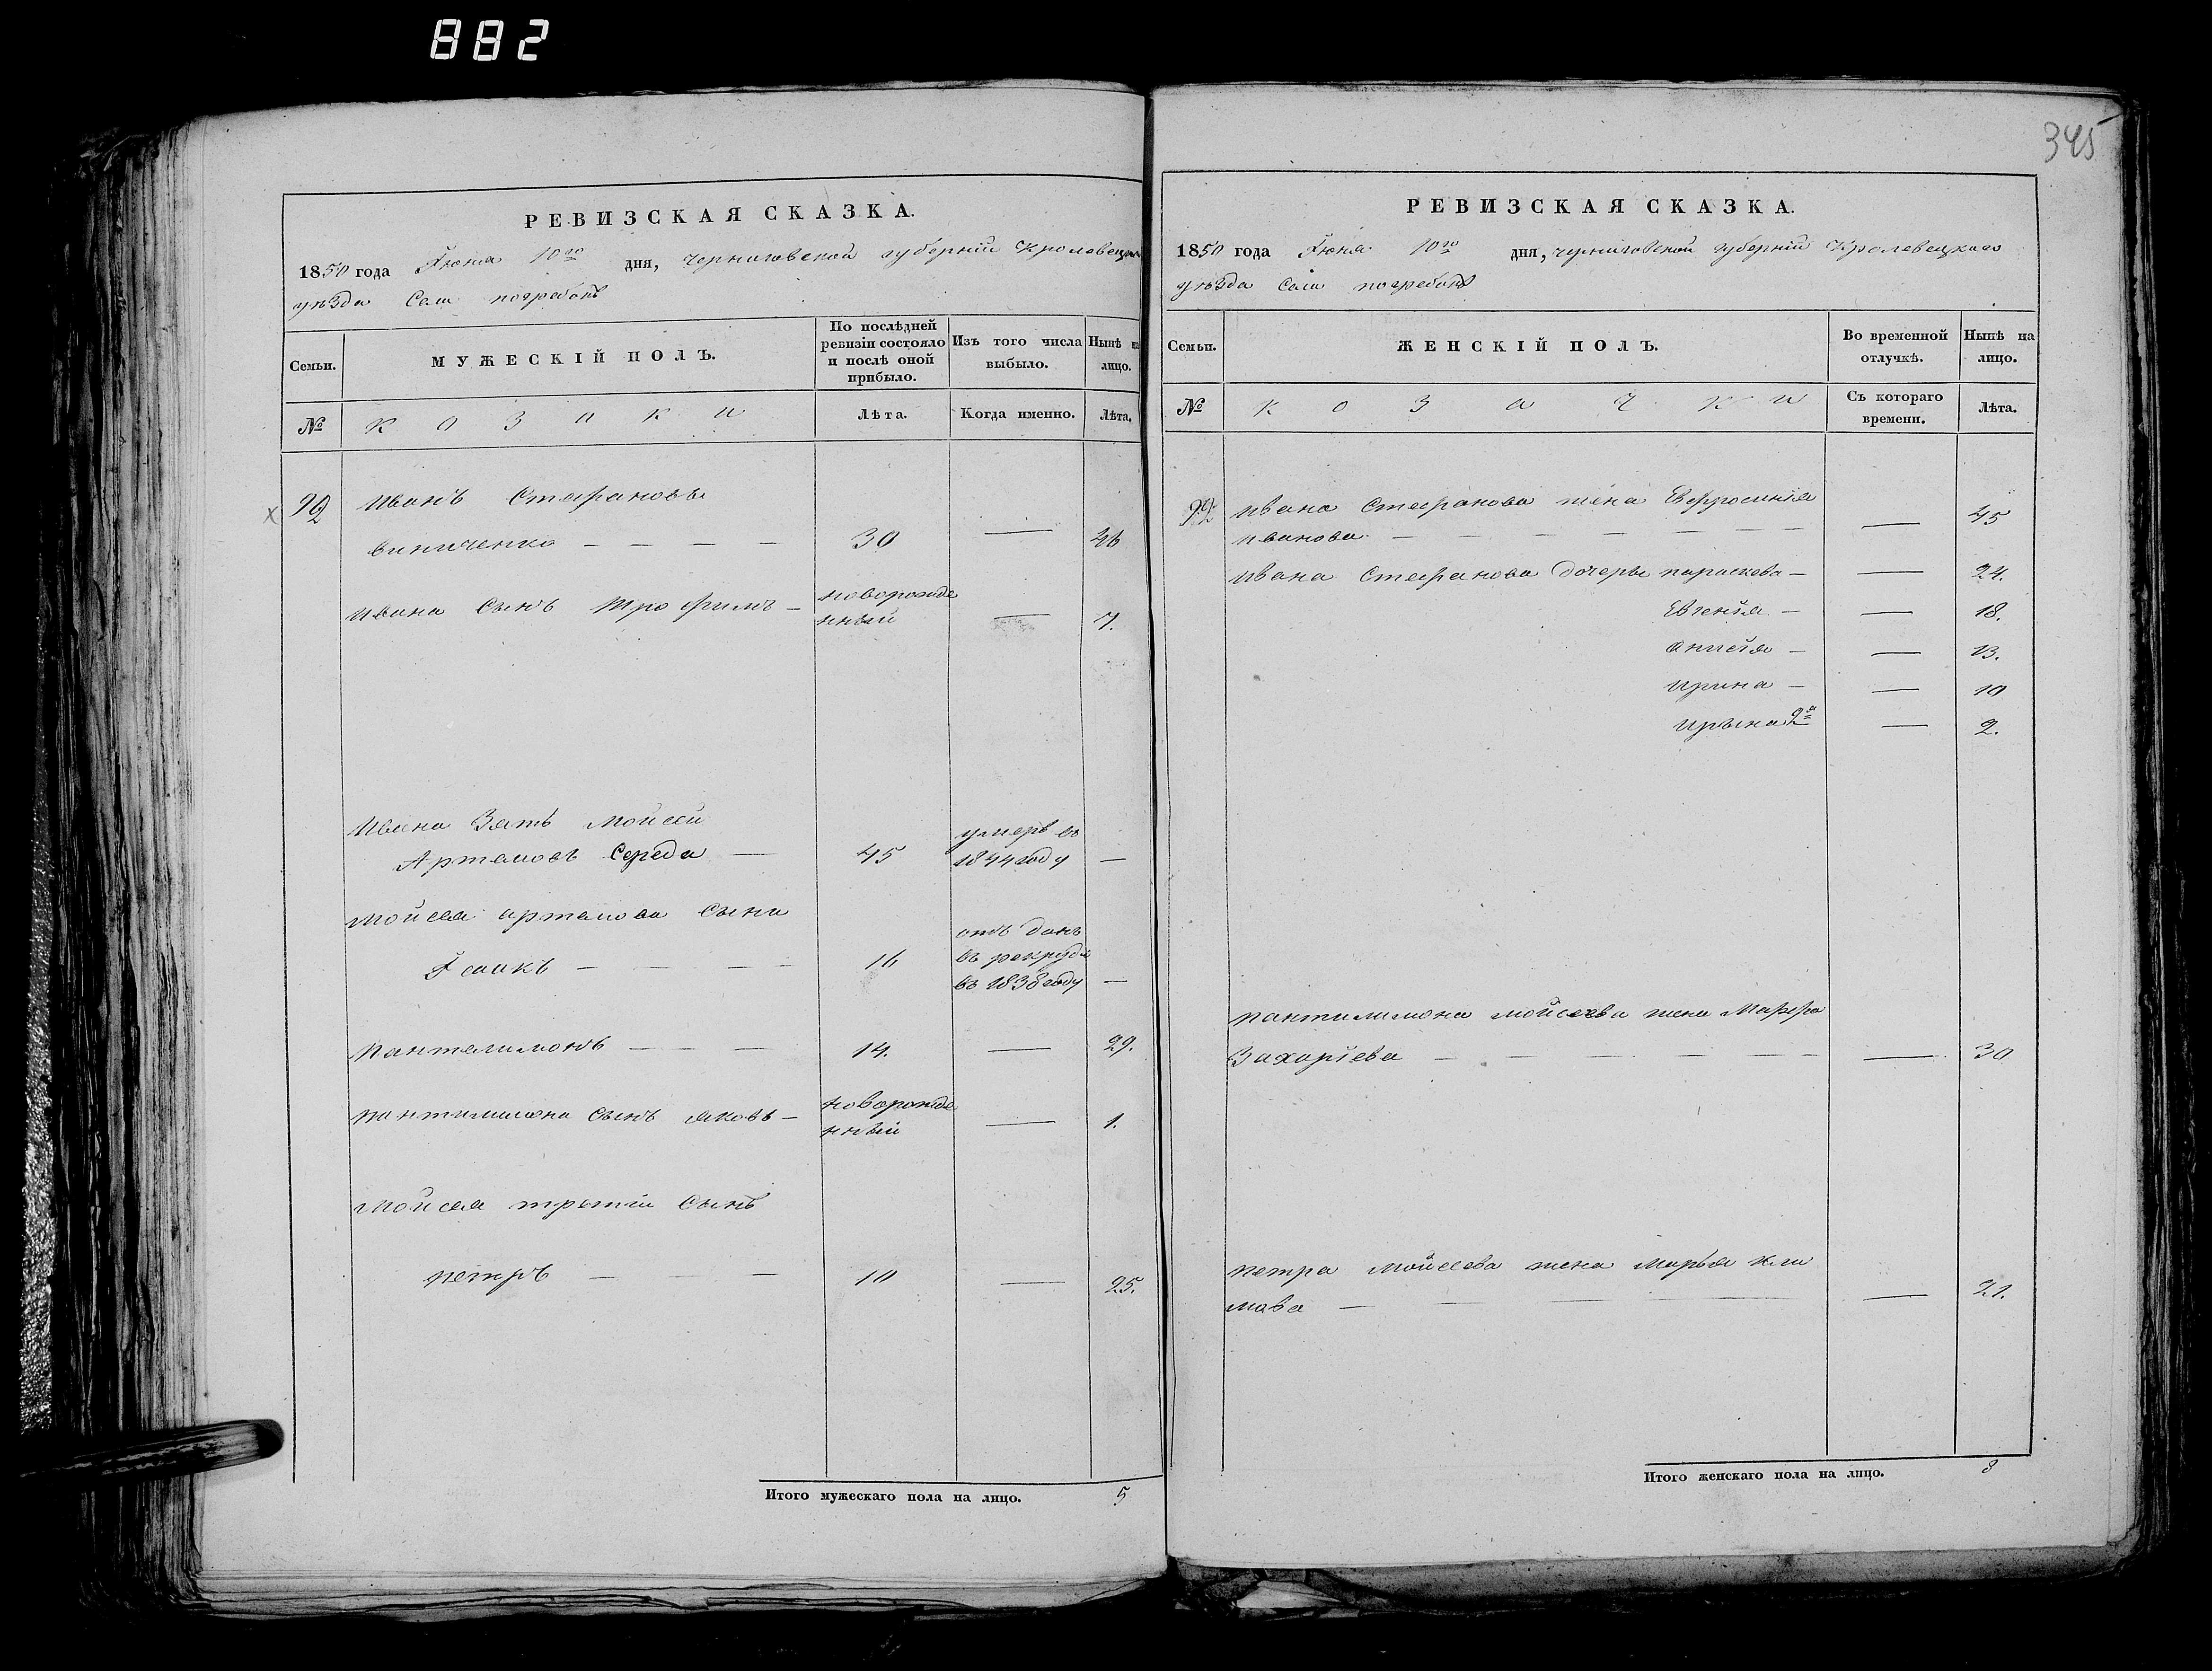 882
345
РЕВИЗСКАЯ СКАЗКА.
1850 года Іюня 10го дня, Черниговской губерніи Кролевецкаго
уѣзда Села погребокъ
Семьи.
МУЖЕСКІЙ ПОЛЪ.
По послѣдней
ревизіи состояло
и послѣ оной
прибыло.
Изъ того числа
выбыло.
Нынѣ на
лицо.
№
козаки
Лѣта.
Когда именно.
Лѣта.
92 Иванъ Стефановъ
Виниченко — — — — 30 — 46
Ивана Сынъ Трофимъ — новорожде
нный — 7.
Ивана Зять Мойсей
Артемовъ Середа — 45 умеръ въ
1844 году —
Мойсея артемова Сына
Ісаакъ — — — — 16 отъ данъ
въ рекруты
въ 1838 году —
Пантелимонъ — — — 14. — 29.
Пантилимона Сынъ Яковъ — новорожде
нный — 1.
Мойсея третій Сынъ
петръ — — — 10 — 25.
Итого мужескаго пола на лицо. 5
РЕВИЗСКАЯ СКАЗКА.
1850 года Іюня 10го дня, черниговской губерніи Кролевецкаго
уѣзда Села погребокъ
Семьи.
ЖЕНСКІЙ ПОЛЪ.
Во временной
отлучкѣ.
Нынѣ на
лицо.
№
козачки
Съ котораго
времени.
Лѣта.
92 Ивана Стефанова жена Евфросинія
Иванова — — — — — — 45
Ивана Стефанова дочеры параскева — — 24.
Евгенія — — 18.
анисія — — 13.
Ирина — — 10
Ирына 2я — 2.
пантилимона мойсеева жена Марфа
Захаріева — — — — — — 30
петра Мойсеева жена Марья Кли
мова — — — — — 21.
Итого женскаго пола на лицо. 8